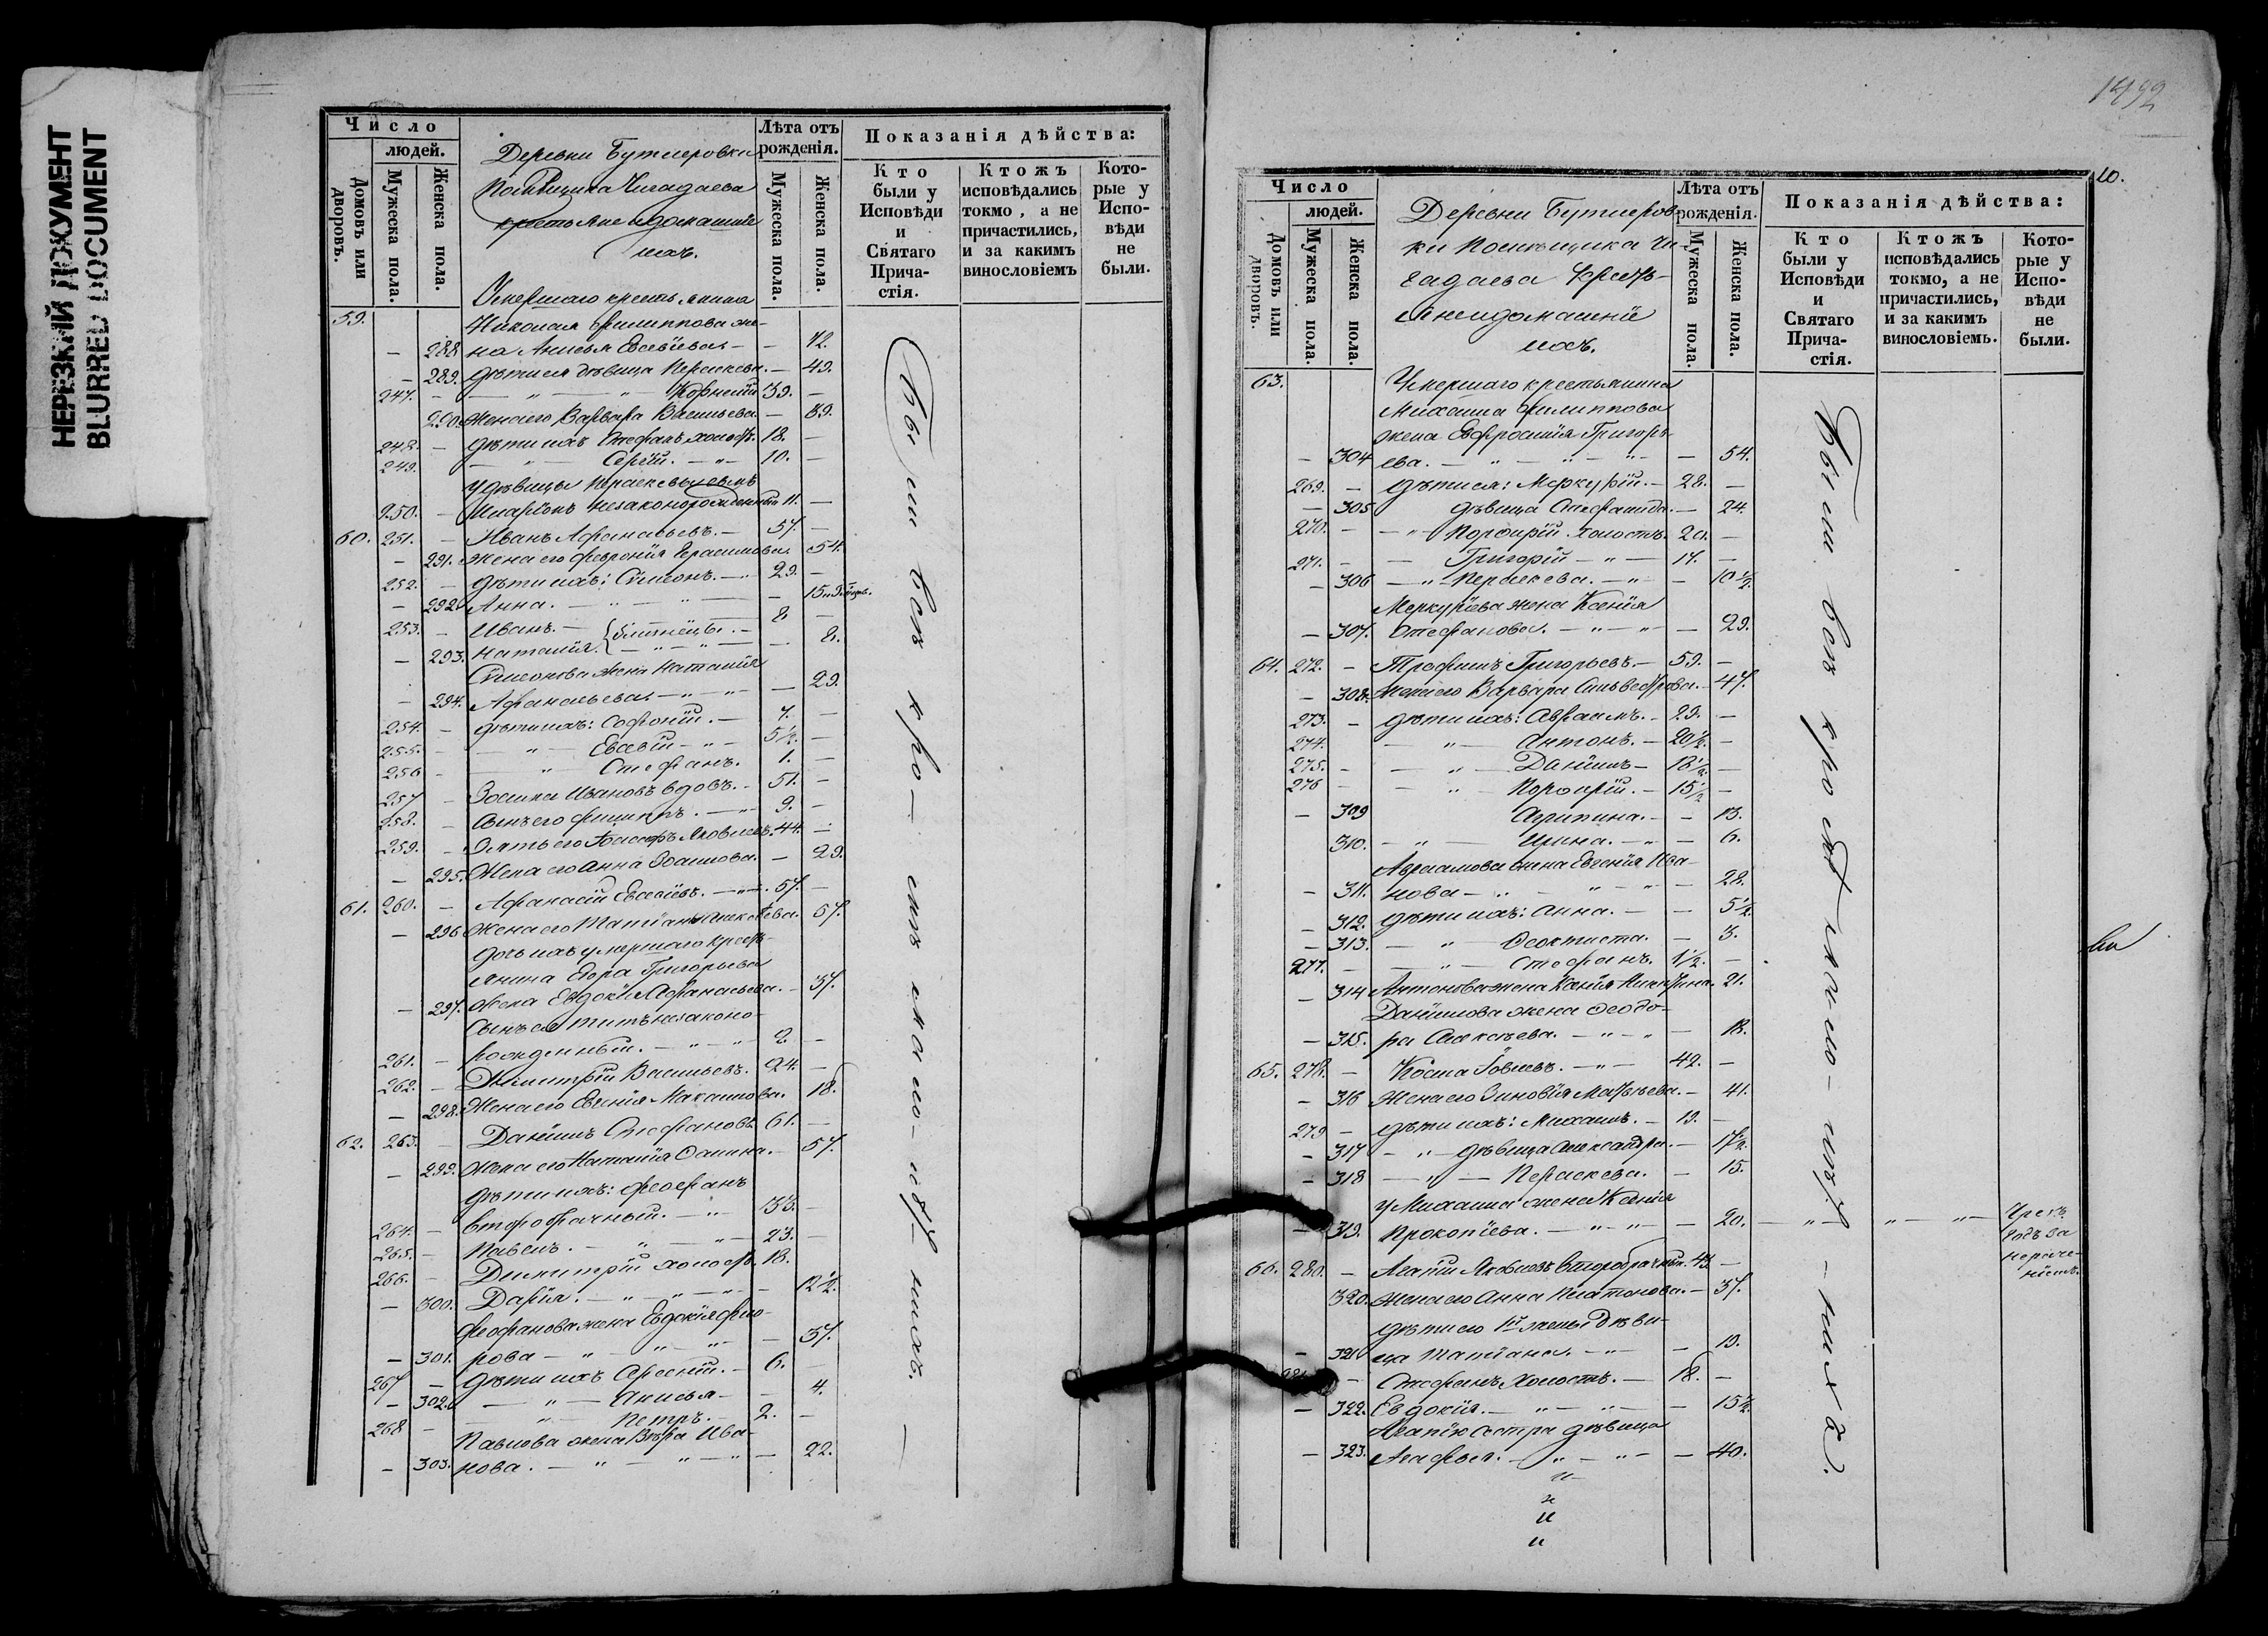 НЕРЕЗКИЙ ДОКУМЕНТ
BLURRED DOCUMENT
Число
людей.
Домовъ или дворовъ.
Мужеска пола.
Женска пола.
Деревни Бутлеровки
помѣщика Чегадаева
крестьяне и домашніе
ихъ.
Лѣта отъ рожденія.
Мужеска пола.
Женска пола.
Показанія дѣйства:
Кто были у Исповѣди и Святаго Прича-стія.
Ктожъ исповѣдались токмо, а не причастились, и за какимъ винословіемъ
Кото-рые у Испо-вѣди не были.
59. Умершаго крестьянина
Николая Филиппова же-
— 288 на Анисья Евсѣвіева — — 72.
— 289. дѣти ея дѣвица Пераскева. — 49.
247. — — „ — „ Корнилій 39. —
290. Жена его Варвара Васильева. — 39.
248. — дѣти ихъ Стефанъ холостъ. 18. —
249. — „ — Сергій. — „ — 10. —
У дѣвицы Пераскевы сынъ
250. — Иларіонъ незаконорожденный 11. —
60. 251. — Иванъ Афанасьевъ. — 57. —
— 291. Жена его Феврониія Герасимова. 54.
252. — дѣти ихъ: Симеонъ. — „ 29. —
— 292 Анна. — „ — „ — 15
253. — Иванъ. — { близнецы. — 8 —
— 293. Наталія. { — „ — „ — — 8.
Симеонова жена Наталія
— 294. Афанасьева. — „ — „ — 29.
254. — дѣти ихъ: Софроній. — 7. —
255. — — „ — Евсѣвій — „ — 5½. —
256 — — „ — Стефанъ. 1. —
257 — Зосима Ивановъ вдовъ. — 51. —
258. — Сынъ его Филиппъ. — „ — 9. —
259. — Зять его Іосифъ Яковлевъ. 44. —
— 295. Жена его Анна Зосимова. — 29.
61. 260. — Афанасій Евсѣвіевъ. — „ — 57. —
— 296 Жена его Татіана Алексѣева. 57.
дочь ихъ умершаго кресть-
янина Егора Григорьева
— 297. жена Евдокія Афанасьева. — 37.
Сынъ ея Титъ незаконо-
261. — рожденный. — „ — „ 2 —
262. — Димитрій Васильевъ. 24. —
— 298. Жена его Евгенія Макаимова. 18.
62. 263. — Даніилъ Стефановъ 61. —
— 299. жена его Наталія Фомина. — 57.
дѣти ихъ: Феофанъ
264. — второбрачный. — „ 33. —
265. — Павелъ. — „ — „ — 23. —
266. — Димитрій холостъ. 18.
— 300. Дарія. — „ — „ — „ — 12½.
Феофанова жена Евдокія Фло-
— 301. рова — „ — „ — „ — 37.
267 — дѣти ихъ Арсеній. — 6. —
— 302. — „ — Анисья — — 4.
268 — — „ — Петръ. — 2. —
Павлова жена Вѣра Ива-
— 303. нова. — „ — „ — „ — 22.
Были всѣ кро- мѣ мало- лѣт- нихъ. —
1492
10.
Число
людей.
Домовъ или дворовъ.
Мужеска пола.
Женска пола.
Деревни Бутлеров-
ки помѣщика Че-
гадаева кресть-
яне и домашніе
ихъ.
Лѣта отъ рожденія.
Мужеска пола.
Женска пола.
Показанія дѣйства:
Кто были у Исповѣди и Святаго Прича-стія.
Ктожъ исповѣдались токмо, а не причастились, и за какимъ винословіемъ.
Кото-рые у Испо-вѣди не были.
63. Умершаго крестьянина
Михаила Филиппова
жена Евфросинія Григорь-
— 304 ева. — „ — „ — „ — — 54.
269. — дѣти ея: Меркурій. — 28. —
— 305 дѣвица Стефанида. — 24.
270. — — „ — Порфирій холостъ. 20. —
271. — — Григорій — „ — 17. —
— 306 — „ — Пераскева. — „ — 10½.
Меркуріева жена Ксенія
— 307. Стефанова. — „ — „ — 29.
64. 272. — Трофимъ Григорьевъ. — 59. —
— 308. Жена его Варвара Сильвестрова. — 47.
273. — дѣти ихъ: Авраамъ. — 29. —
274. — „ — Антонъ. — 20½. —
275. — — „ — Даніилъ — 18½ —
276 — — „ — Порфирій. — 15½ —
— 309 Агрипина. — — 13.
310. — „ — Ирина. — „ — 6.
Авраамова жена Евгенія Ива-
— 311. нова — „ — „ — „ — 28.
— 312. дѣти ихъ: Анна. — — 5½.
— 313. — „ — Феоктиста. — 3.
277. — — „ — Стефанъ. 1½. —
— 314 Антонова жена Ксенія Никитина. 21.
Даніилова жена Феодо-
— 315. ра Алексѣева. — „ — „ — 18.
65. 278. — Косма Іовлевъ. — „ — 42. —
— 316 Жена его Зиновія Матвѣева. — 41.
279 — дѣти ихъ: Михаилъ. — 19. —
— 317 — „ — дѣвица Александра. — 17½.
— 318 — „ — Пераскева. — 15.
У Михаила жена Ксенія
— 319. Прокопіева. — „ — „ — 20. — „ — „ — „ —
66. 280. — Агапій Яковлевъ второбрачный. 43. —
320. Жена его Анна Платонова. — 37.
дѣти его 1й жены дѣви-
— 321 ца Татіана. — „ — — 19.
281 — Стефанъ холостъ. — 18. —
— 322. Евдокія. — „ — „ — — 15½.
Агапію сестра дѣвица
— 323. Агафья. — „ — „ — — 40.
„
„
„
„
Были всѣ кро мѣ мало- лѣт - нихъ.